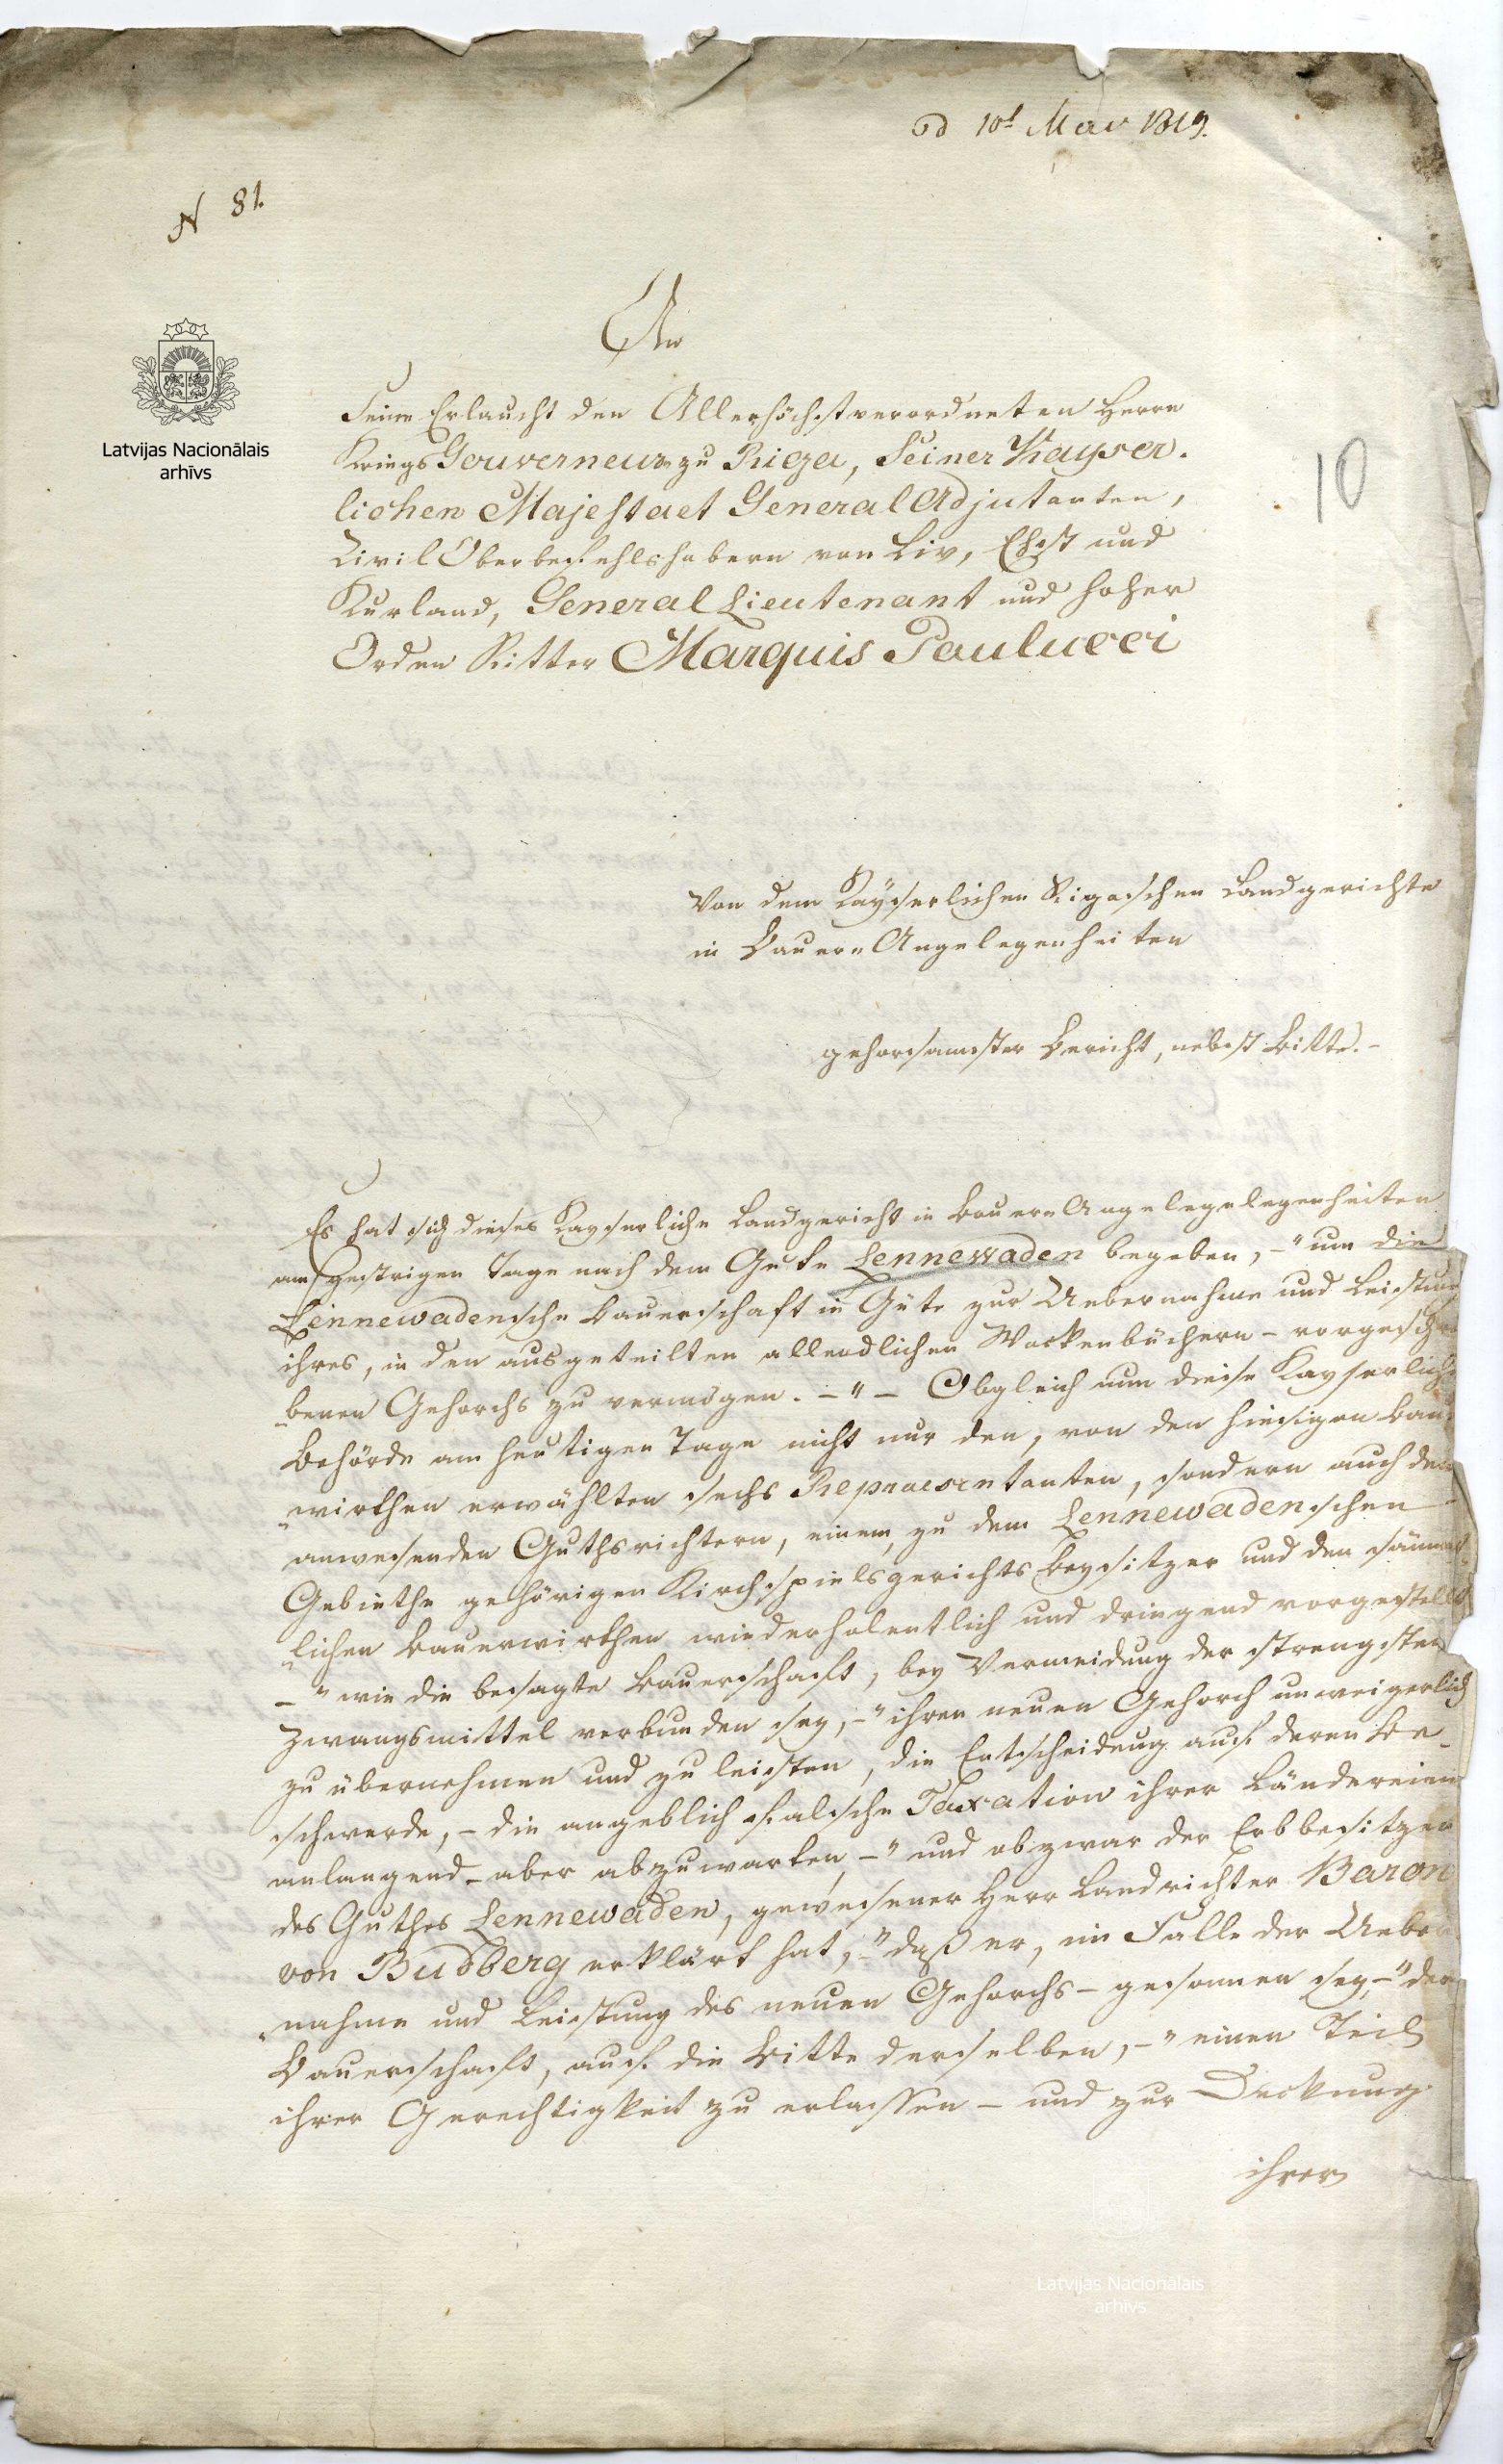 d 10t May 1819.
N 81.
An
Latvijas Nacionālais
arhīvs
Seine Erlaucht den Allerhöchstverordneten Herrn
Kriegs Gouverneur zu Riga, Seiner Kayser-
lichen Majestaet General Adjutanten,
10
Zivil Oberbefehlshabern von Liv, Ehst und
Kurland, General Lieutenant und hoher
Orden Ritter Marquis Paulucci
Von dem Kayserlichen Rigaschen Landgerichte
in Bauern Angelegenheiten
gehorsamster Bericht, nebst Bitte.-
Es hat sich dieses Kayserliche Landgericht in Bauern Angelegelegenheiten
am gestrigen Tage nach dem Gute Lennewaden begeben, -" um die
Lennewadensche Bauerschaft in Güte zur Uebernahme und Leistung
ihres, in den ausgeteilten allendlichen Wackenbüchern - vorgeschrie
benen Gehorchs zu vermögen. -"- Obgleich nun diese Kayserliche
Behörde am heutigen Tage nicht nur den, von den hiesigen Bauer
wirthen erwählten sechs Repraesentanten, sondern auch den
anwesenden Guthsrichtern, einem, zu dem Lennewadenschen
Gebiethe gehörigen Kirchspielsgerichts Beysitzer und den sämmt-
lichen Bauerwirthen wiederholentlich und dringend vorgestellt
-" wie die besagte Bauerschaft, bey Vermeidung der strengsten
Zwangsmittel verbunden sey, -" ihren neuen Gehorch unweigerlich
zu übernehmen und zu leisten, die Entscheidung auf deren Be-
schwerde, - die angeblich falsche Taxation ihrer Ländereien
anlangend - aber abzuwarten, -" und obzwar der Erbbesitzer
des Guthes Lennewaden, gewesener Herr Landrichter Baron
von Budberg erklärt hat, -" daß er, im Falle der Ueber
nahme und Leistung des neuen Gehorchs - gesonnen sey, -" der
Bauerschaft, auf die Bitte derselben, -" einen Teil
ihrer Gerechtigkeit zu erlassen - und zur Deckung
ihrer
Latvijas Nacionālais
arhīvs